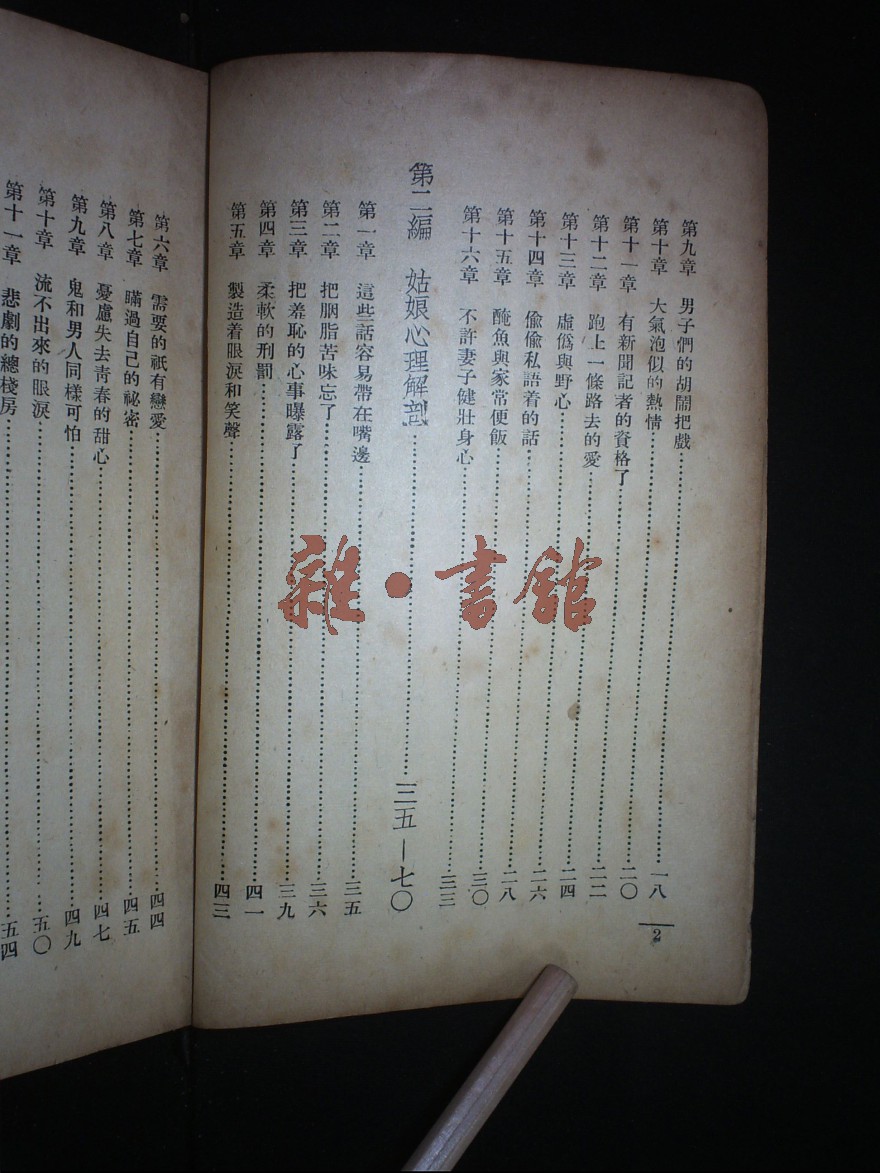 第九章　男子們的胡鬧把戲……一八
第十章　大氣泡似的熱情……二〇
第十一章　有新聞記者的資格了……二二
第十二章　跑上一條路去的愛……二四
第十三章　虛僞與野心……二六
第十四章　偸偸私語着的話……二八
第十五章　醃魚與家常便飯……三〇
第十六章　不許妻子健壯身心……三三
第二編　姑娘心理解剖……三五—七〇
第一章　這些話容易帶在嘴邊……三五
第二章　把胭脂苦味忘了……三六
第三章　把羞恥的心事曝露了……三九
第四章　柔軟的刑罰……四一
第五章　製造着眼淚和笑聲……四三
2
第六章　需要的祇有戀愛……四四
第七章　瞞過自己的祕密……四五
第八章　憂慮失去靑春的甜心……四七
第九章　鬼和男人同樣可怕……四九
第十章　流不出來的眼淚……五〇
第十一章　悲劇的總棧房……五四
雜·書館